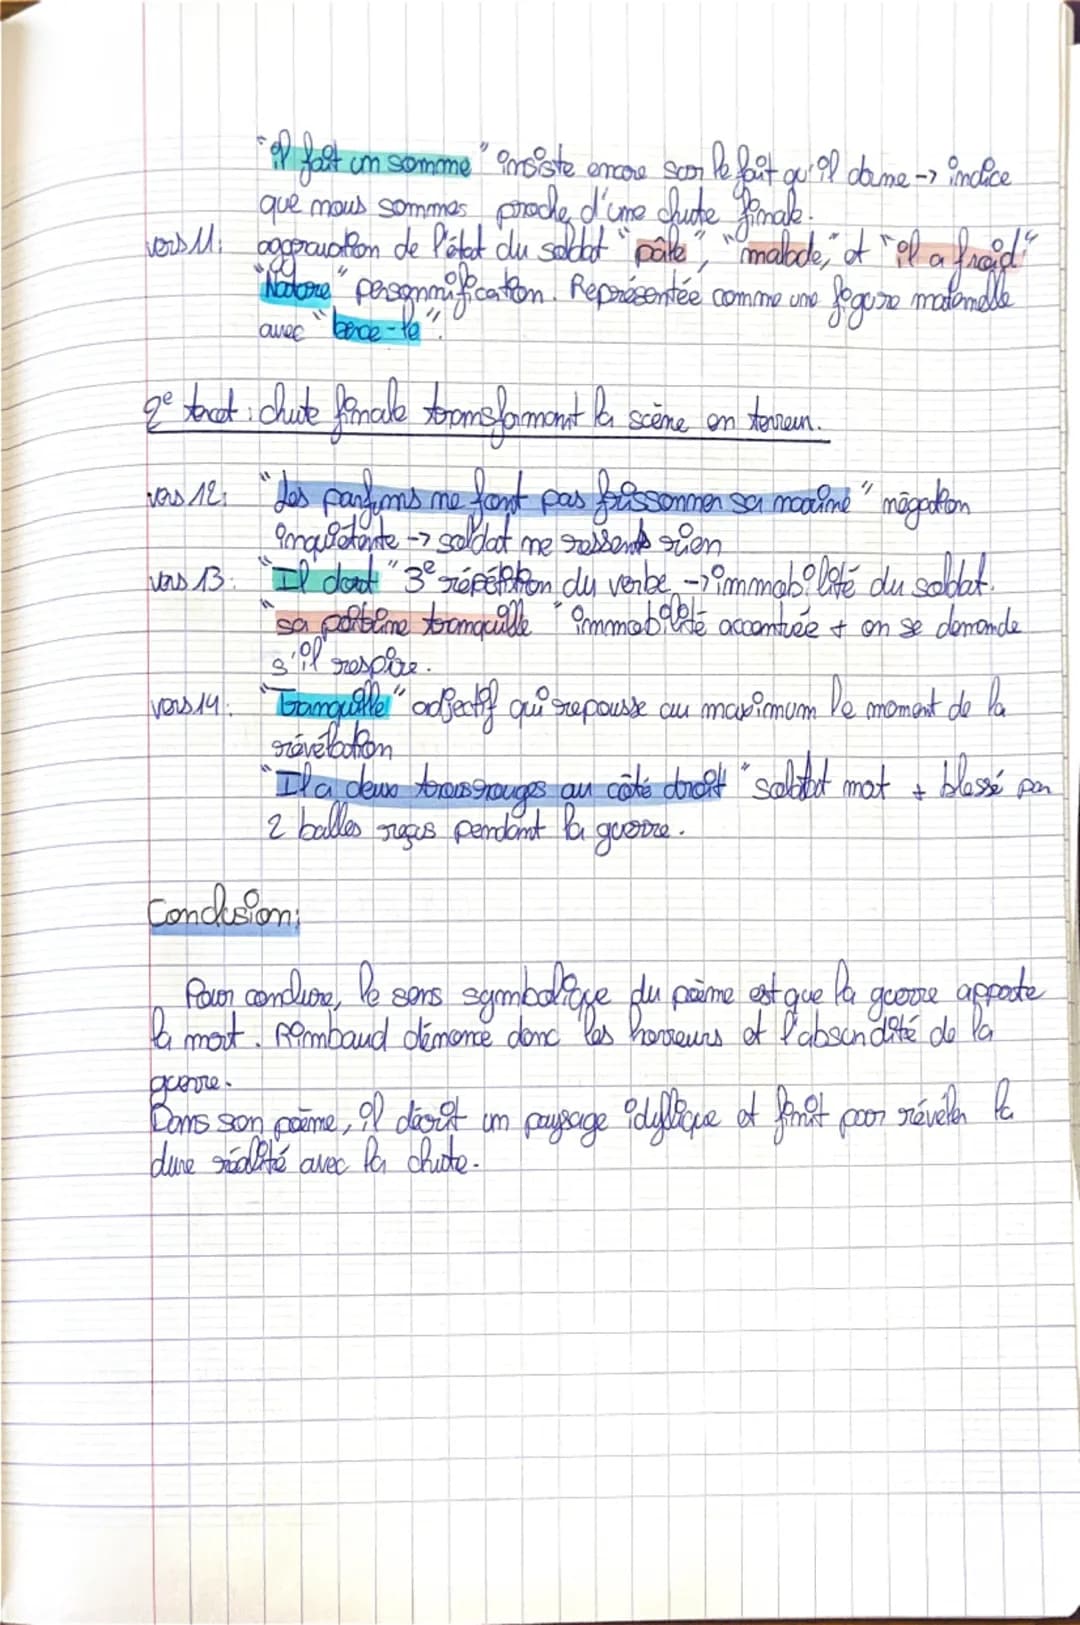 "il fait un somme" insiste encore sur le fait qu'il dorme -> indice
que nous sommes proche d'une chute finale.
vers 11: aggravation de l'état du soldat "pâle", "malade," et "il a froid"
"Nature" personnification. Représentée comme une figure maternelle
avec "berce-le".
2e tercet : chute finale transformant la scène en terreur.
vers 12: "Les parfums ne font pas frissonner sa narine" négation
inquiétante -> soldat ne ressents rien
vers 13: "Il dort" 3e répétition du verbe -> immobilité du soldat.
"sa poitrine tranquille" immobilité accentuée + on se demande
s'il respire.
vers 14: "tranquille" adjectif qui repousse au maximum le moment de la
révélation
"Il a deux trous rouges au côté droit" soldat mort + blessé par
2 balles reçus pendant la guerre.
Conclusion:
Pour conclure, le sens symbolique du poème est que la guerre apporte
la mort. Rimbaud dénonce donc les horreurs et l'absurdité de la
guerre.
Dans son poème, il décrit un paysage idyllique et finit pour révéler la
dure réalité avec la chute.